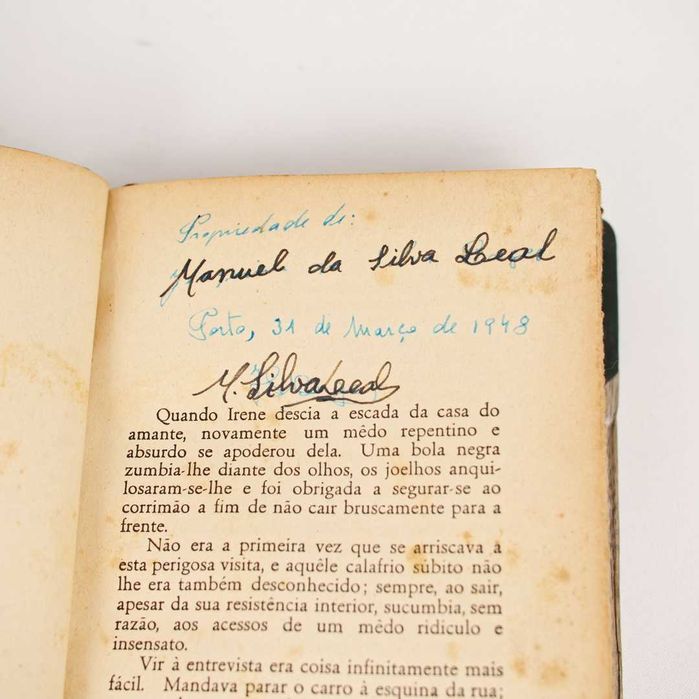 Propriedade de:
Manuel da Silva Leal
Porto, 31 de Março de 1948
M. Silva Leal
Quando Irene descia a escada da casa do
amante, novamente um mêdo repentino e
absurdo se apoderou dela. Uma bola negra
zumbia-lhe diante dos olhos, os joelhos anqui-
losaram-se-lhe e foi obrigada a segurar-se ao
corrimão a fim de não cair bruscamente para a
frente.
Não era a primeira vez que se arriscava a
esta perigosa visita, e aquêle calafrio súbito não
lhe era também desconhecido; sempre, ao sair,
apesar da sua resistência interior, sucumbia, sem
razão, aos acessos de um mêdo ridículo e
insensato.
Vir à entrevista era coisa infinitamente mais
fácil. Mandava parar o carro à esquina da rua;